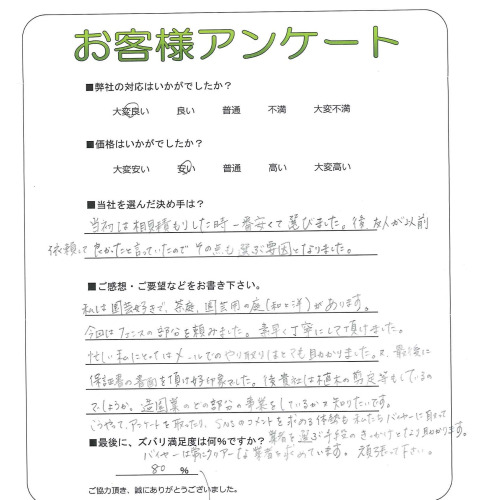 お客様アンケート
■弊社の対応はいかがでしたか?
大変良い 良い 普通 不満 大変不満
■価格はいかがでしたか?
大変安い 安い 普通 高い 大変高い
■当社を選んだ決め手は?
当初は相見積もりした時一番安くて選びました。後、友人が以前
依頼して良かったと言っていたのでその点も選ぶ要因となりました。
■ご感想・ご要望などをお書き下さい。
私は園芸好きで、茶庭、園芸用の庭(和と洋)があります。
今回はフェンスの部分を頼みました。素早く丁寧にして頂けました。
忙しい私にとってはメールでのやり取りはとても助かりました。又、最後に
保証書の書面を頂け好印象でした。後貴社は植木の剪定等もしているの
でしょうか。造園業のどの部分の事業をしているか知りたいです。
こうやって、アンケートを取ったり、SNSのコメントを求める体勢も私たちバイヤーに取って
■最後に、ズバリ満足度は何%ですか? 業者を選ぶ手段のきっかけとなり助かります。
バイヤーは常にクリアーな業者を求めています。頑張って下さい。
80 %
ご協力頂き、誠にありがとうございました。